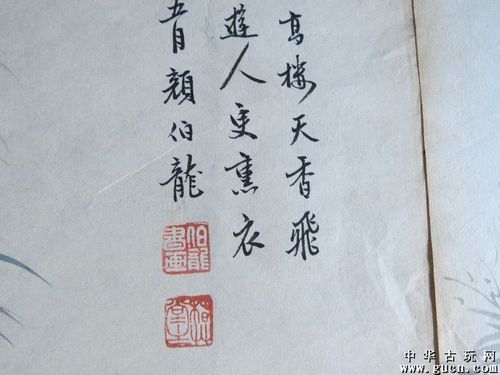 高楼天香飛
遊人更熏衣
五月顔伯龍
伯龍書畫
中华古玩网
www.gucn.com